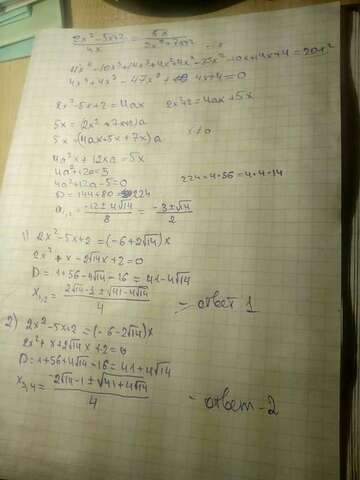 (2x² - 5x + 2)/4x = 5x/(2x² + 7x + 2)
4x⁴ + 4x³ - 47x² + 4x + 4 = 0
2x² - 5x + 2 = 4ax 2x² + 2 = 4ax + 5x
5x = (2x² + 7x + 2)a
5x = (4ax + 5x + 7x)a x ≠ 0
4a²x + 12xa = 5x
4a² + 12a = 5
4a² + 12a - 5 = 0 224 = 4·56 = 4·4·14
D = 144 + 80 = 224
a₁,₂ = (-12 ± 4√14)/8 = (-3 ± √14)/2
1) 2x² - 5x + 2 = (-6 + 2√14)x
2x² + x - 2√14x + 2 = 0
D = 1 + 56 - 4√14 - 16 = 41 - 4√14
x₁,₂ = (2√14 - 1 ± √(41 - 4√14))/4 - ответ 1
2) 2x² - 5x + 2 = (-6 - 2√14)x
2x² + x + 2√14x + 2 = 0
D = 1 + 56 + 4√14 - 16 = 41 + 4√14
x₃,₄ = (-2√14 - 1 ± √(41 + 4√14))/4 - ответ - 2